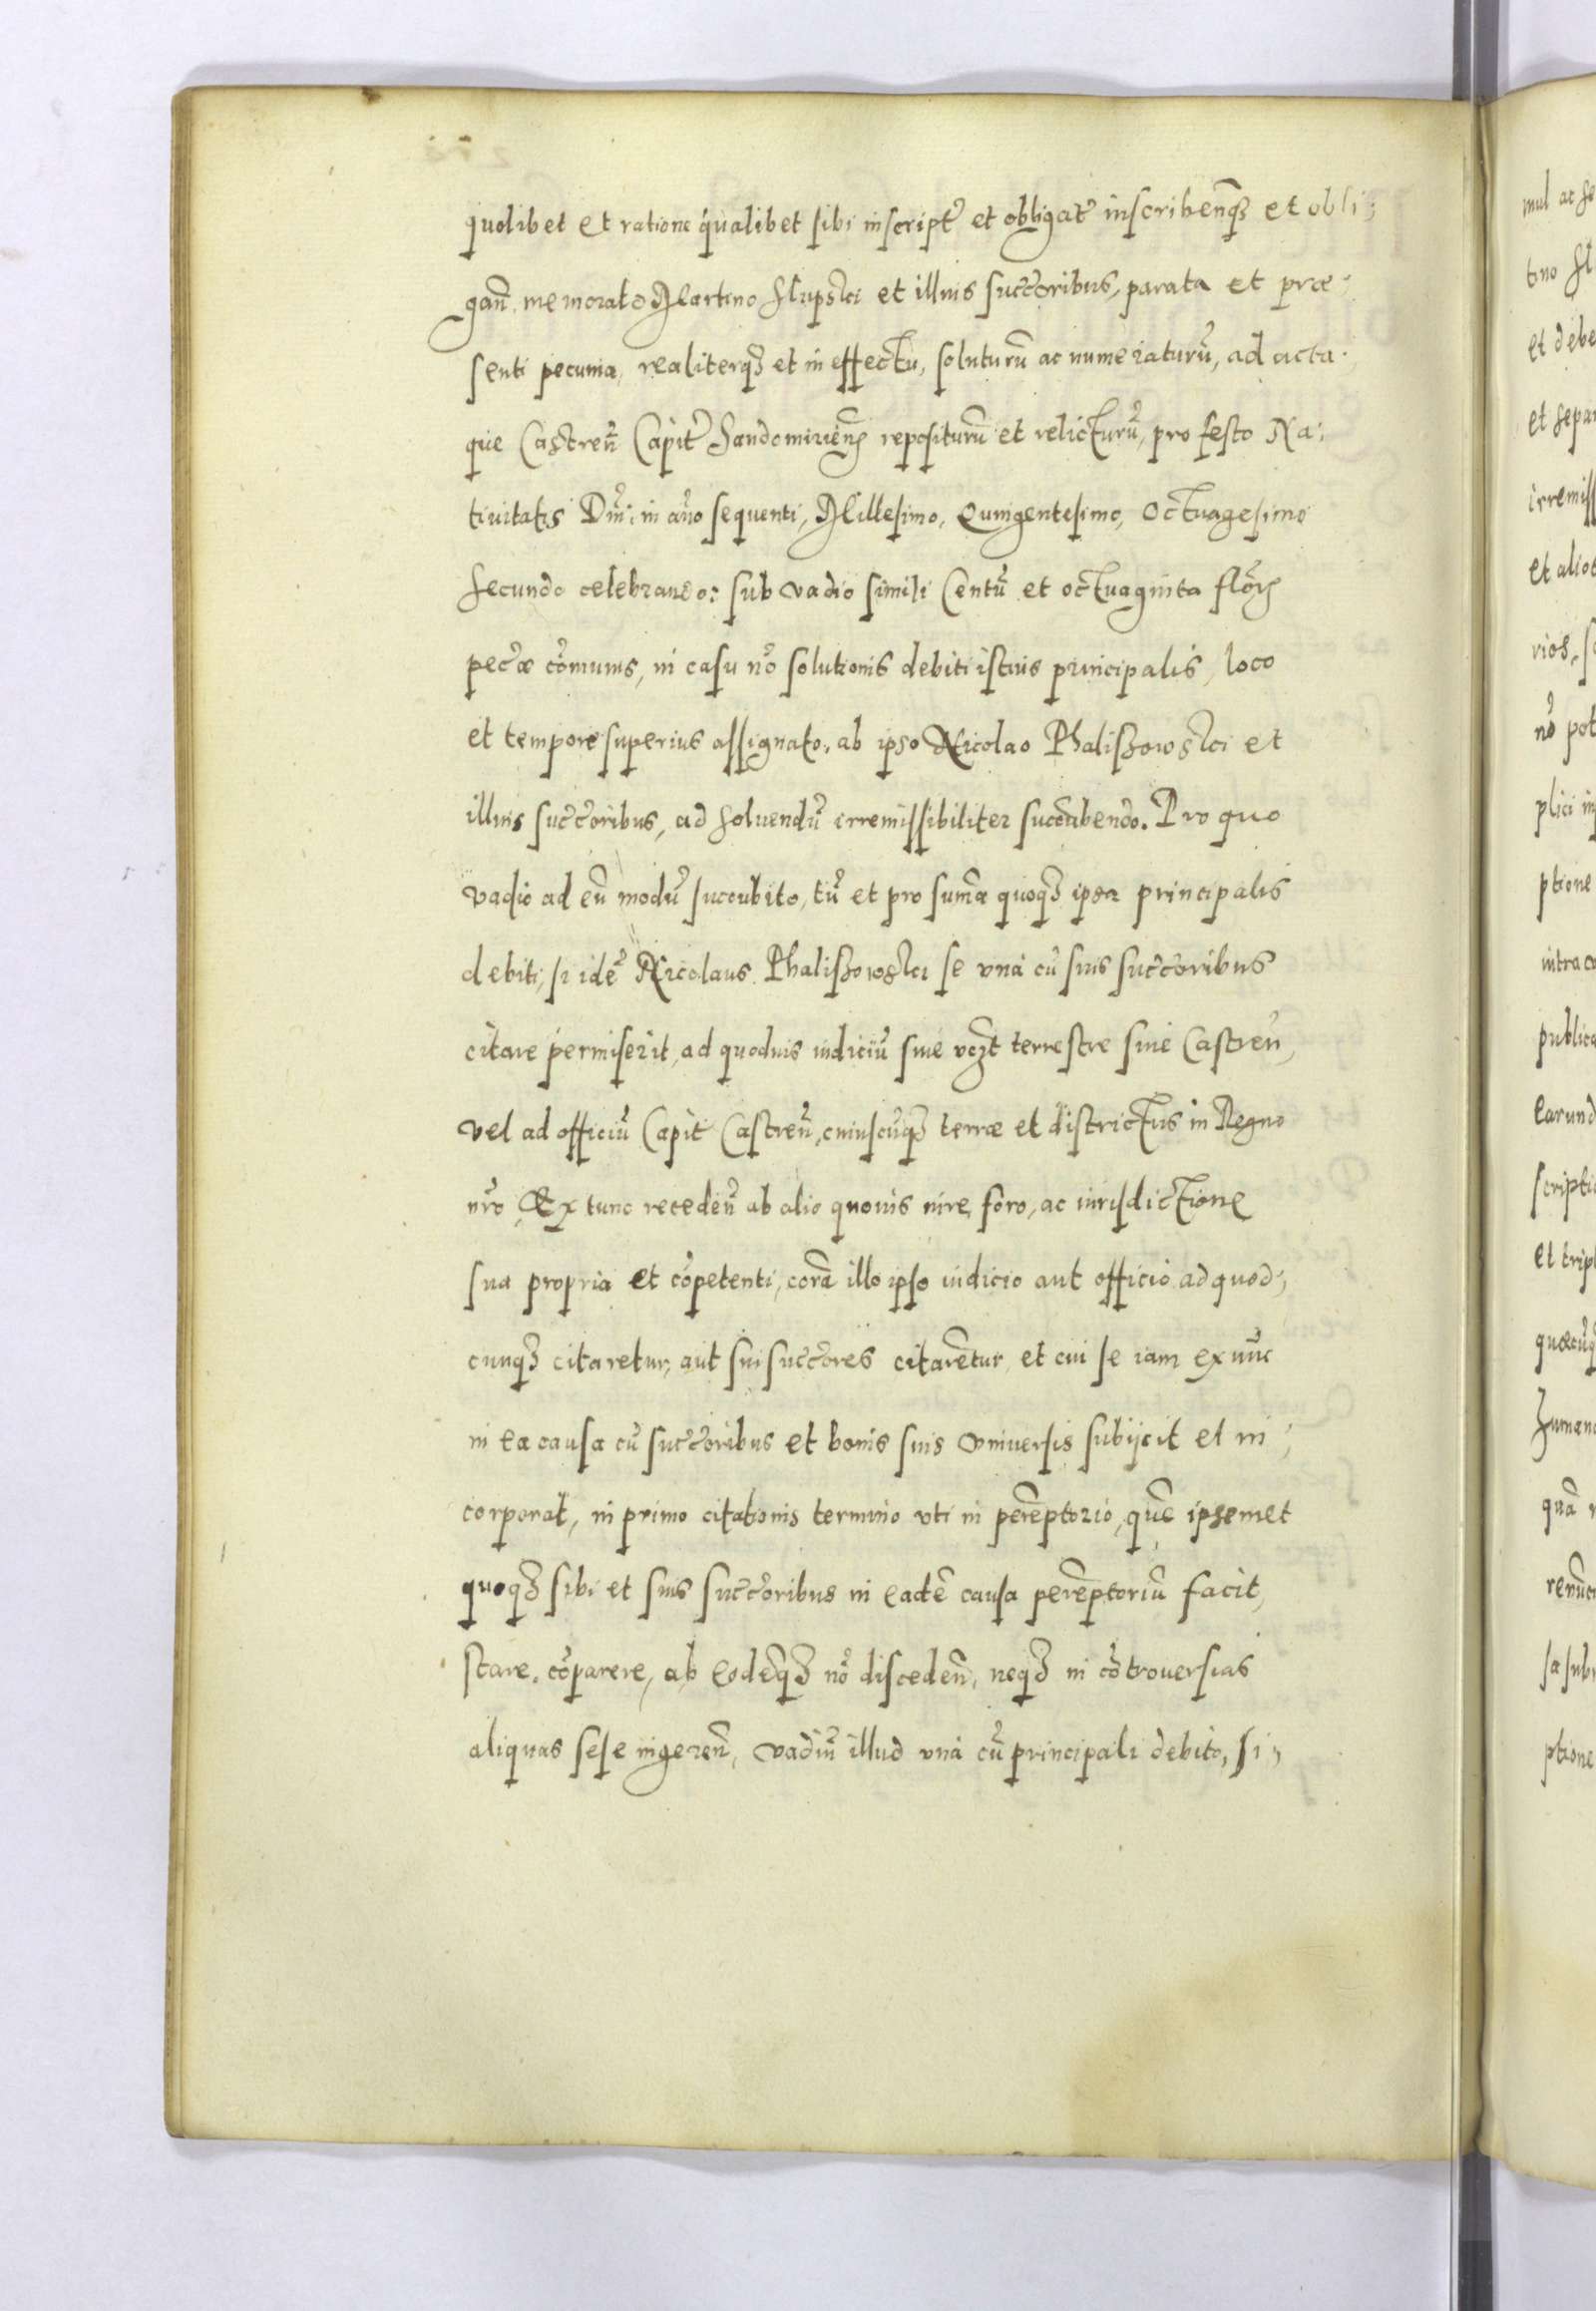 quolibet et ratione qualibet sibi inscript̃ et obligat̃ inscribeñq̃ et obli;
gañ. memorato Martino Slupski et illius succ̃oribus, parata et præ;
senti pecunia, realiterq́3 et in effectu, soluturũ ac numeraturũ, ad acta.
que Castreñ Capit̃ Sandomirieñ repositurũ et relicturũ, pro festo Na;
tiuitatis Dñi. in año sequenti, Millesimo, Quingentesimo, Octuagesimo
secundo celebrando: sub vadio simili Centũ et octuaginta floꝝ
pec̃æ cõmunis, in casu nõ solutionis debiti istius principalis, loco
et tempore superius assignato, ab ipso Nicolao Phaliszowski et
illius succ̃oribus, ad soluendũ irremissibiliter succũbendo. Pro quo
vadio ad eũ modũ succubito, tũ et pro summa quoq3 ipsa principalis
debiti, si idẽ Nicolaus Phaliszowski se vnà cũ suis succ̃oribus
citare permiserit, ad quoduis iudiciũ siue vc̃3t terrestre siue Castreñ,
vel ad officiũ Capit̃ Castreñ, cuiuscũq3 terræ et districtus in Regno
nr̃o, Ex tunc recedeñ ab alio quouis iure, foro, ac iurisdictione
sua propria et cõpetenti, corã illo ipso iudicio aut officio ad quod;
cunq3 citaretur, aut sui succ̃ores citarẽtur, et cui se iam ex nũc
in ea causa cũ succ̃oribus et bonis suis vniuersis subijcit et in;
corporat, in primo citationis termino vti in perẽptorio, quẽ ipsemet
quoq3 sibi et suis succ̃oribus in eadẽ causa perẽptoriũ facit,
stare, cõparere, ab eodẽq3 nõ discedeñ, neq3 in cõtrouersias
aliquas sese ingereñ, vadiũ illud vnà cũ principali debito, si;